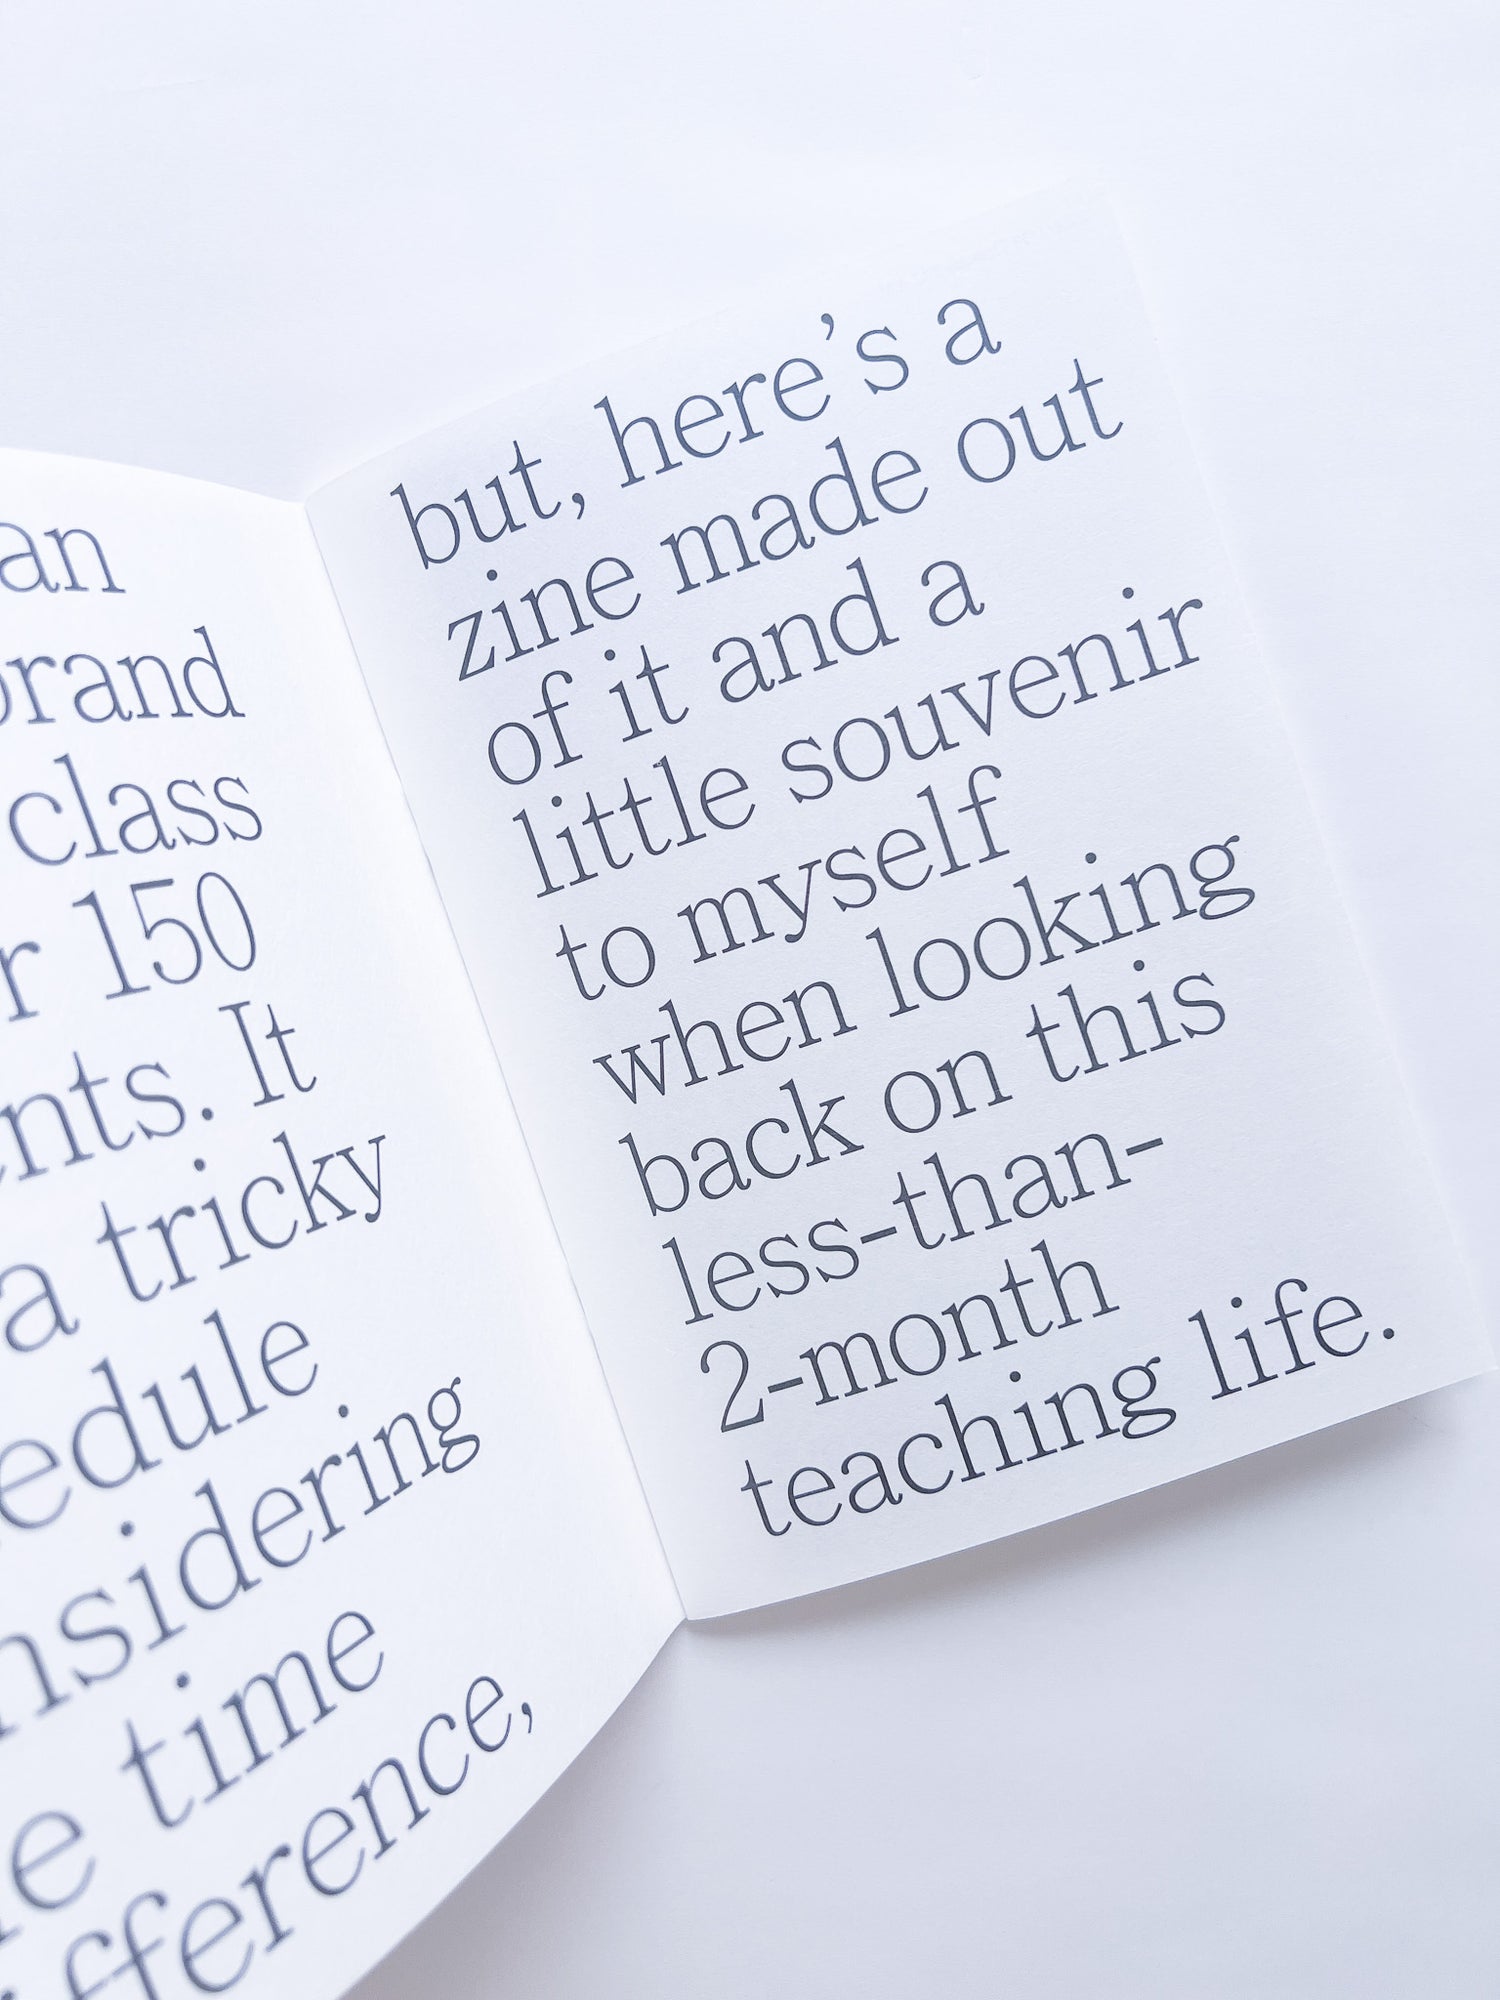 class
150
It
a tricky
time
but, here's a
zine made out
of it and a
little souvenir
to myself
when looking
back on this
less-than-
2-month
teaching life.